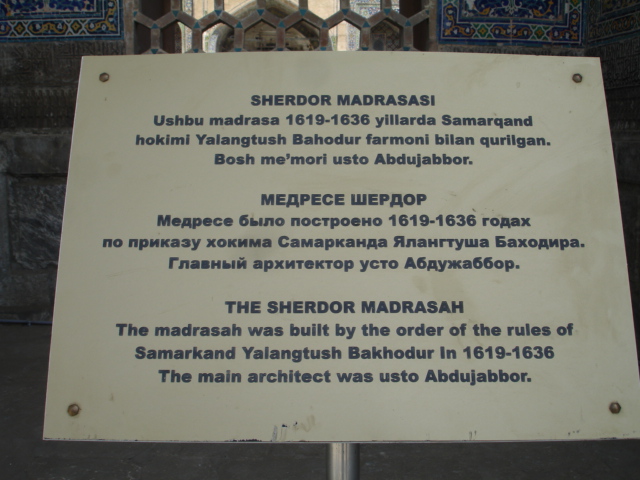 SHERDOR MADRASASI
Ushbu madrasa 1619-1636 yillarda Samarqand
hokimi Yalangtush Bahodur farmoni bilan qurilgan.
Bosh me’mori usto Abdujabbor.
МЕДРЕСЕ ШЕРДОР
Медресе было построено 1619-1636 годах
по приказу хокима Самарканда Ялангтуша Баходира.
Главный архитектор усто Абдужаббор.
THE SHERDOR MADRASAH
The madrasah was built by the order of the rules of
Samarkand Yalangtush Bakhodur In 1619-1636
The main architect was usto Abdujabbor.